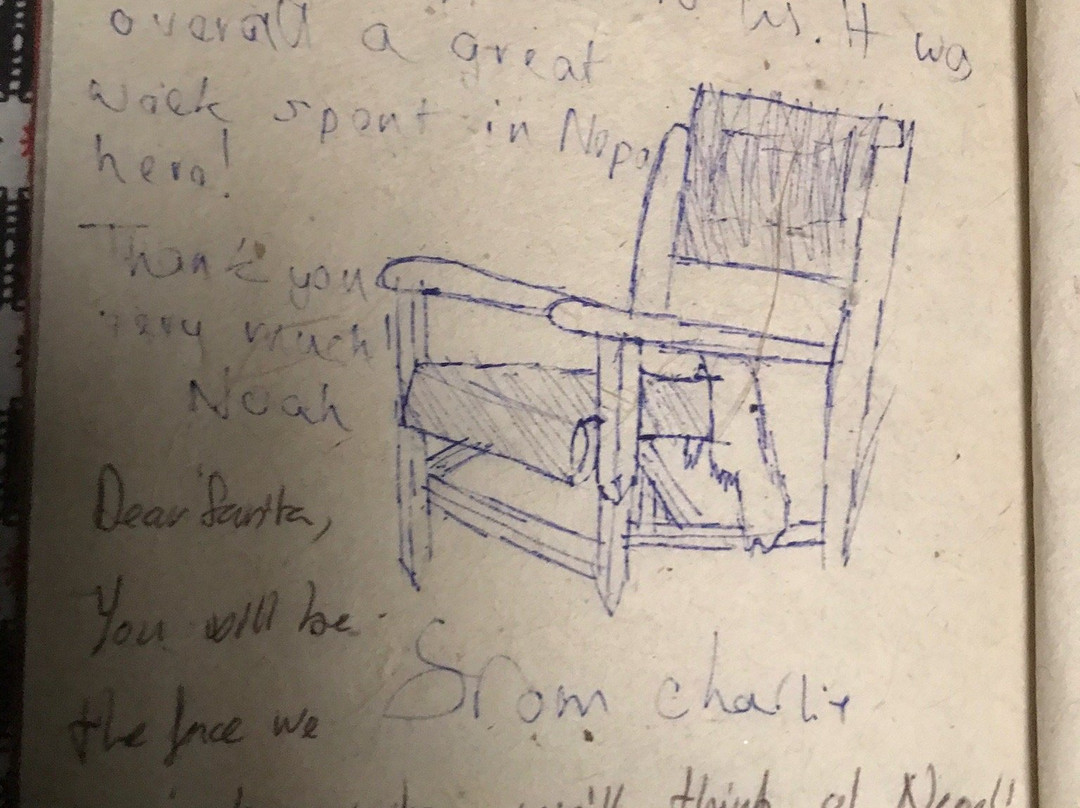 overall a great
us. It was
week spent in Nepal
here!
Thank you
very much!
Noah
Dear Sarita,
You will be
the face we
From charlie
will think of Nepal!